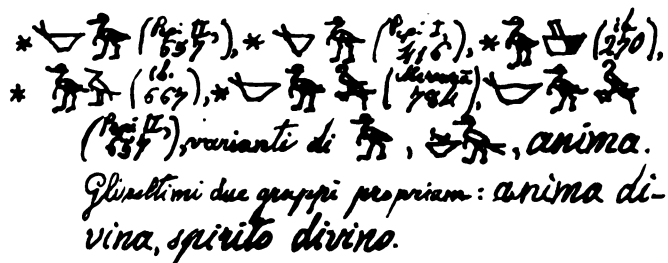 * (Pepi II, 657), * (Pepi I, 416), * (ib. 270),
* (ib. 667), * ( 784),
(Pepi II, 657), varianti di , , anima.
Gli ultimi due gruppi propriam: anima di-
vina, spirito divino.